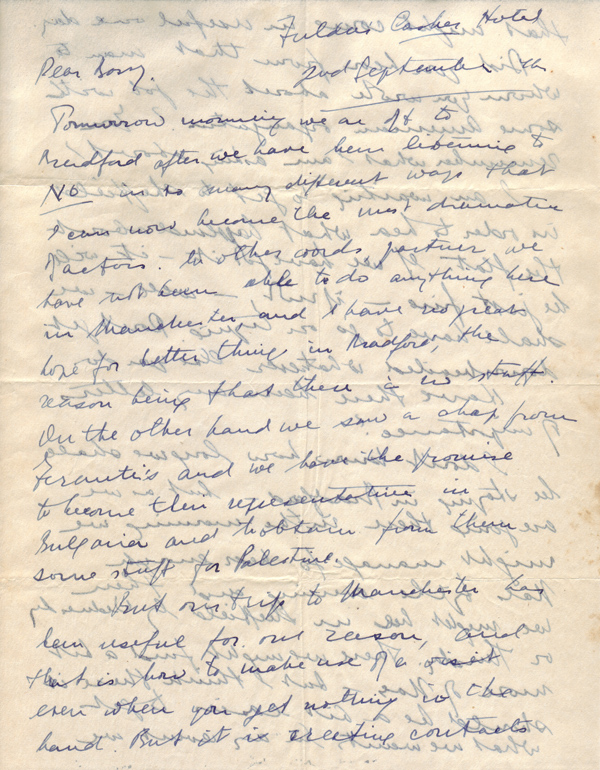 Fuldas Cosher Hotel
Dear Borry. 2nd September
Tommorrow morning we are off to
Bradford after we have been listening to
NO in so many different ways that
I can now become the most dramatic
of actors. In other words partner, we
have not been able to do anything here
in Manchester, and I have no great
hope for better thing in Bradford, the
reason being that there is no stuff.
On the other hand we saw a chap from
Feranti's and we have the promise
to become their representative in
Bulgaria and to obtain from them
some stuff for Palestine.
But our trip to Manchester has
been useful for one reason, and
that is how to make use of a visit
even when you get nothing in the
hand. But it is creating contacts